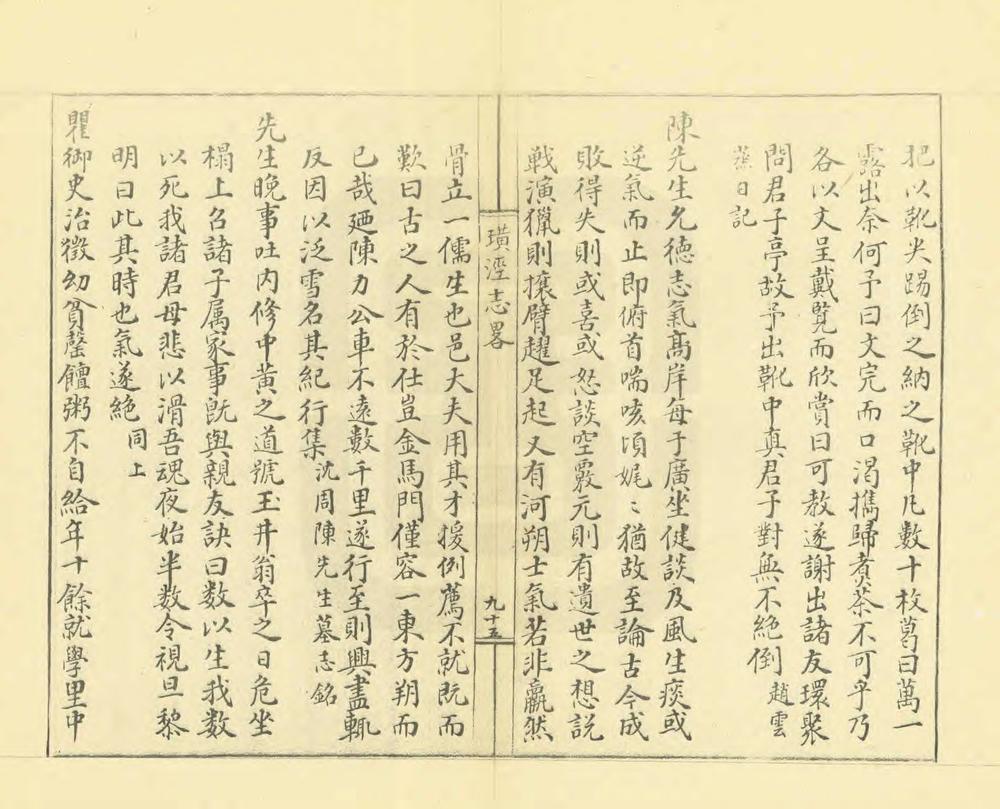 犯以靴尖踢倒之納之靴中凡數十枚葛曰萬一
露出奈何予曰文完而口渴攜歸煮茶不可乎乃
各以文呈戴覽而欣賞曰可教遂謝出諸友環聚
問君子亭故予出靴中真君子對無不絕倒 趙雲
蒸日記
陳先生允德志氣高岸每于廣坐健談及風生痰或
逆氣而止即俯首喘咳頃娓〻猶故至論古今成
敗得失則或喜或怒談空覈元則有遺世之想説
戰演獵則攘臂趯足起又有河朔士氣若非羸然
璜涇志畧
九十五
骨立一儒生也邑大夫用其才援例薦不就既而
歎曰古之人有於仕豈金馬門僅容一東方朔而
已哉廼陳力公車不遠數千里遂行至則興盡輒
反因以泛雪名其紀行集 沈周陳先生墓志銘
先生晚事吐内修中黄之道號玉井翁卒之日危坐
榻上召諸子属家事旣與親友訣曰数以生我数
以死我諸君毋悲以滑吾魂夜始半数令視旦黎
明曰此其時也氣遂絶 同上
瞿御史治徵幼貧罄饘粥不自給年十餘就學里中